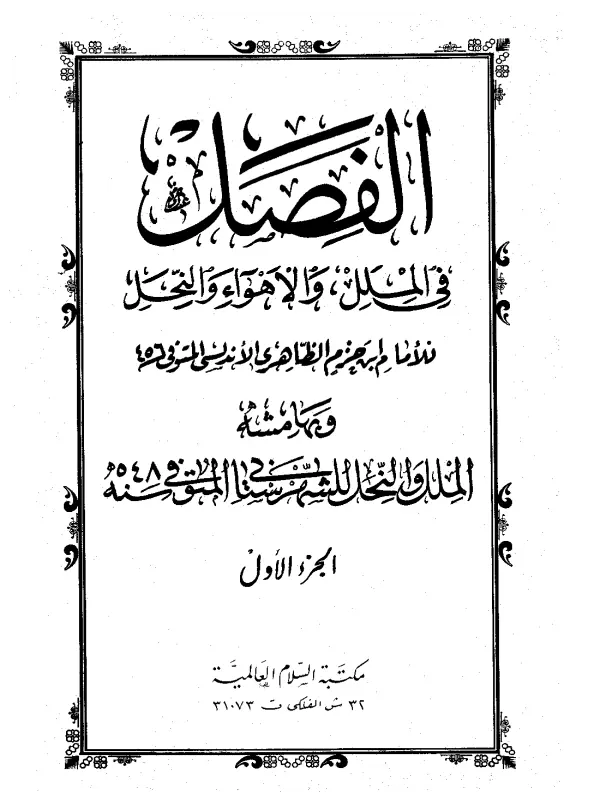 الفِصَل
في المِلَل، والأهْوَاء وَالنِّحَل
للأمام ابن حزم الظاهرى الأندلسى المتوفى ٤٥٦
وبهامشه
الملل والنحل للشهرستانى المتوفى سنه ٥٤٨
الجزء الأول
مكتبة السلام العالمية
٣٢ ش الفلكى ت ٣١٠٧٣